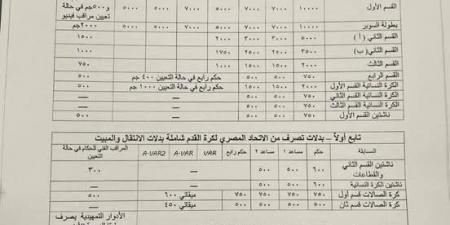 القسم الأول ١٠٠٠٠ ٥٠٠٠ ٥٠٠٠ ٥٠٠٠ ٧٠٠٠ ٥٠٠٠ ٥٠٠٠ و٥٠٠جم في حالة تعيين مراقب فيديو
بطولة السوبر ٢٠٠٠جم
القسم الثاني (أ) ٥٠٠٠ ٣٠٠٠ ٣٠٠٠ ٢٠٠٠ ١٥٠٠
القسم الثاني (ب) ٣٥٠٠ ١٧٥٠ ١٠٠٠
القسم الثالث ٢٠٠٠ ١٥٠٠ ١٥٠٠ ١٠٠٠ ٧٥٠
القسم الرابع ٧٥٠ ٥٠٠ ٥٠٠ حكم رابع في حالة التعيين ٤٠٠ جم ٥٠٠
الكرة النسائية القسم الأول ٢٠٠٠ ١٥٠٠ ١٥٠٠ حكم رابع في حالة التعيين ١٠٠٠ جم ٥٠٠
الكرة النسائية القسم الثاني ٧٥٠ ٥٠٠ ٥٠٠
الكرة النسائية القسم الثالث ٧٥٠ ٥٠٠ ٥٠٠
ناشئين القسم الأول ٧٥٠ ٥٠٠ ٥٠٠ ٥٠٠
تابع أولاً – بدلات تصرف من الاتحاد المصري لكرة القدم شاملة بدلات الانتقال والمبيت
المسابقة حكم مساعد ١ مساعد ٢ حكم رابع VAR A-VAR A-VAR2 المراقب الفني للحكام في حالة التعيين
ناشئين القسم الثاني والقطاعات ٦٠٠ ٥٠٠ ٥٠٠ ٣٠٠
ناشئين الكرة النسائية ٦٠٠ ٥٠٠ ٥٠٠
كرة الصالات قسم أول ٧٥٠ ٧٥٠ ٧٥٠ ٧٥٠ ميقاتي ٦٠٠ ٥٠٠
كرة الصالات قسم ثان ٥٠٠ ٥٠٠ ٥٠٠ ميقاتي ٤٥٠
الأدوار التمهيدية يصرف